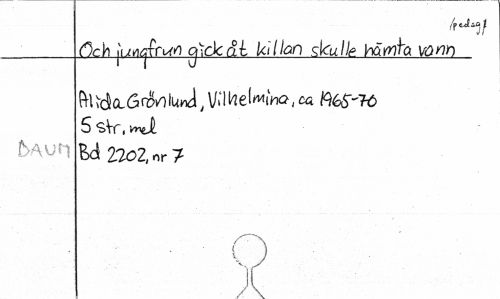 Och jungfrun gick åt killan skulle hämta vann
Alida Grönlund, Vilhelmina, ca 1965-70
5 str, mel
DAUM Bd 2202, nr 7